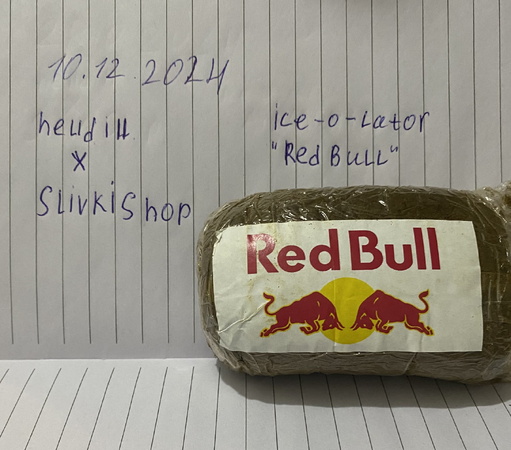 10.12.2024
heudill
x
SlivkiShop
ice-o-Lator
"Red BULL"
Red Bull